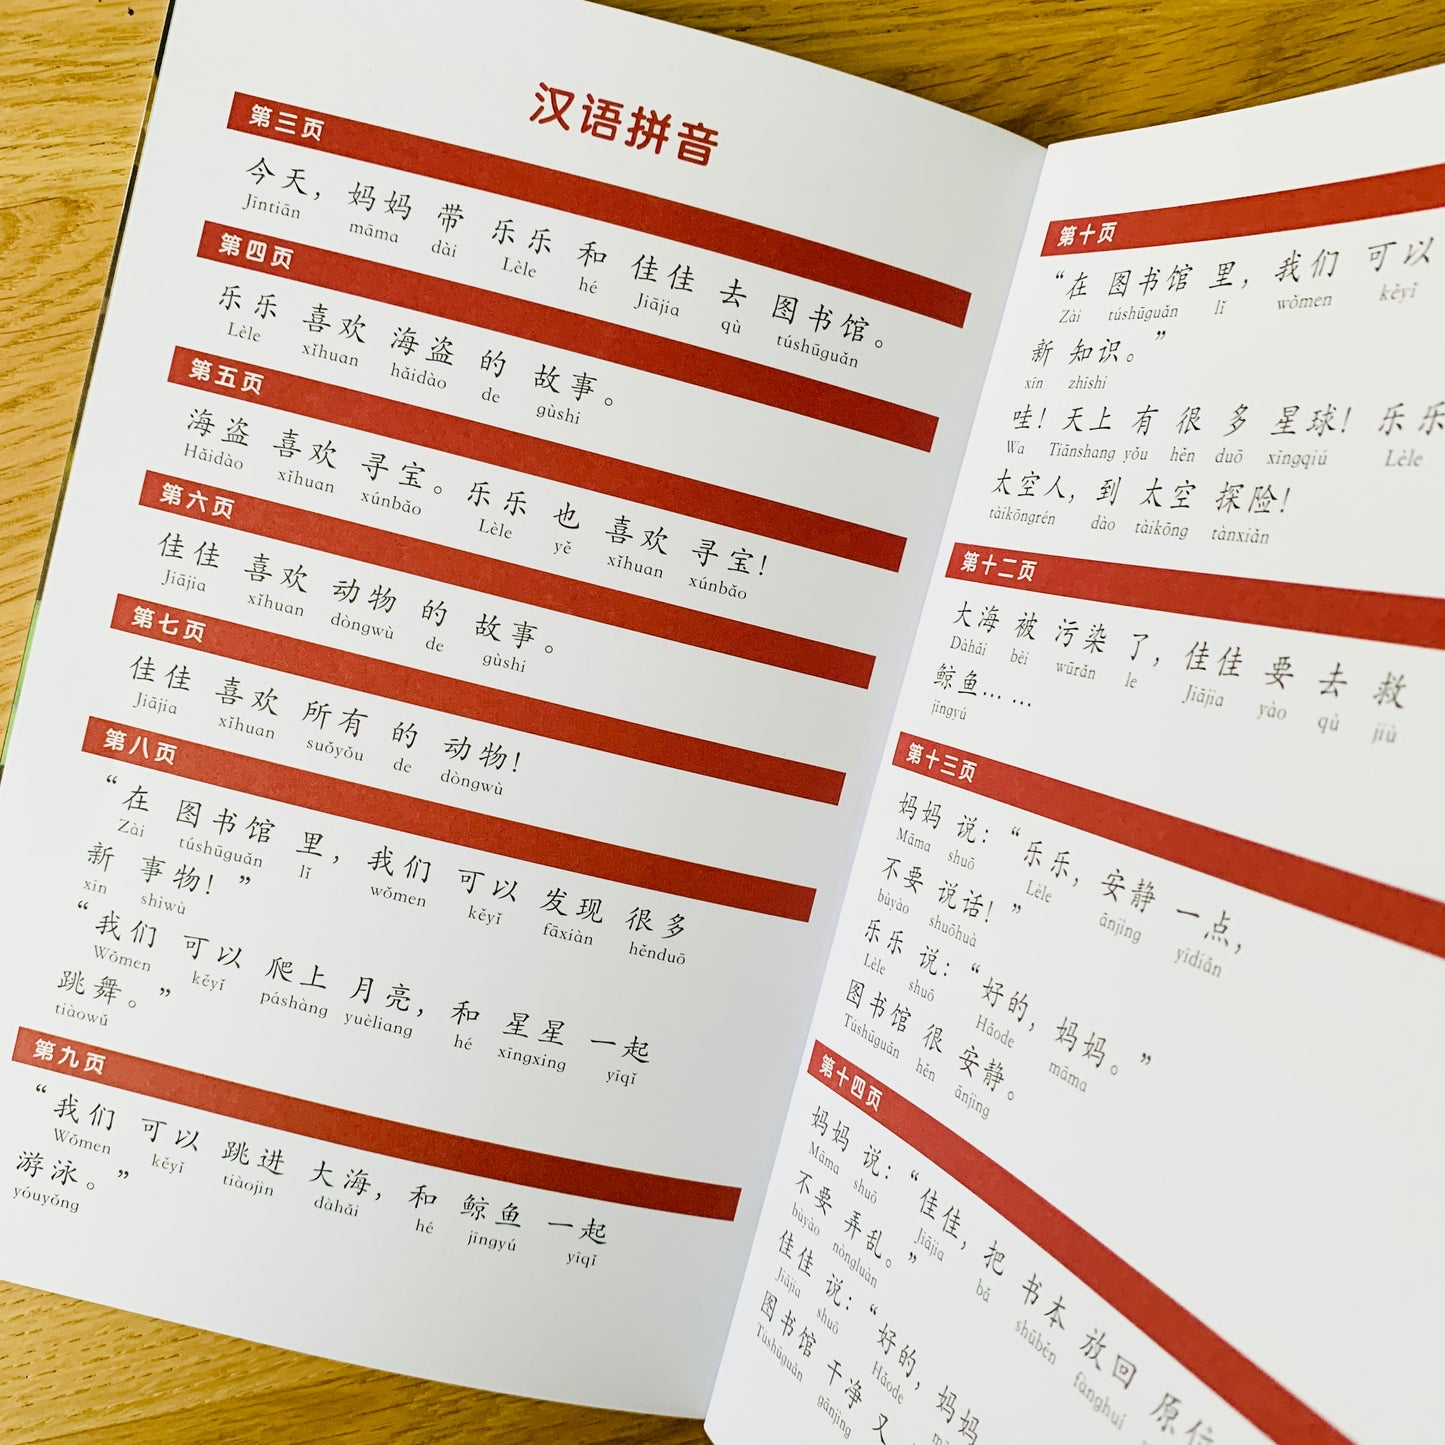 汉语拼音
第三页
今天，妈妈 带 乐乐 和 佳佳 去 图书馆。
Jīntiān māma dài Lèle hé Jiājia qù túshūguǎn
第四页
乐乐 喜欢 海盗 的 故事。
Lèle xǐhuan hǎidào de gùshi
第五页
海盗 喜欢 寻宝。乐乐 也 喜欢 寻宝！
Hǎidào xǐhuan xúnbǎo Lèle yě xǐhuan xúnbǎo
第六页
佳佳 喜欢 动物 的 故事。
Jiājia xǐhuan dòngwù de gùshi
第七页
佳佳 喜欢 所有 的 动物！
Jiājia xǐhuan suǒyǒu de dòngwù
第八页
“在 图书馆 里，我们 可以 发现 很多
Zài túshūguǎn lǐ wǒmen kěyǐ fāxiàn hěnduō
新 事物！”
xīn shìwù
“我们 可以 爬上 月亮，和 星星 一起
Wǒmen kěyǐ páshàng yuèliang hé xīngxing yīqǐ
跳舞。”
tiàowǔ
第九页
“我们 可以 跳进 大海，和 鲸鱼 一起
Wǒmen kěyǐ tiàojìn dàhǎi hé jīngyú yīqǐ
游泳。”
yóuyǒng
第十页
“在 图书馆 里，我们 可以
Zài túshūguǎn lǐ wǒmen kěyǐ
新 知识。”
xīn zhīshi
哇！天上 有 很 多 星球！乐乐
Wa Tiānshang yǒu hěn duō xīngqiú Lèle
太空人，到 太空 探险！
tàikōngrén dào tàikōng tànxiǎn
第十二页
大海 被 污染 了，佳佳 要 去 救
Dàhǎi bèi wūrǎn le Jiājia yào qù jiù
鲸鱼……
jīngyú
第十三页
妈妈 说：“乐乐，安静 一点，
Māma shuō Lèle ānjìng yīdiǎn
不要 说话！”
bùyào shuōhuà
乐乐 说：“好的，妈妈。”
Lèle shuō Hǎode māma
图书馆 很 安静。
Túshūguǎn hěn ānjìng
第十四页
妈妈 说：“佳佳，把 书本 放回 原
Māma shuō Jiājia bǎ shūběn fànghuí
不要 弄乱。”
bùyào nòngluàn
佳佳 说：“好的，妈妈
Jiājia shuō Hǎode
图书馆 干净 又
Túshūguǎn gānjìng